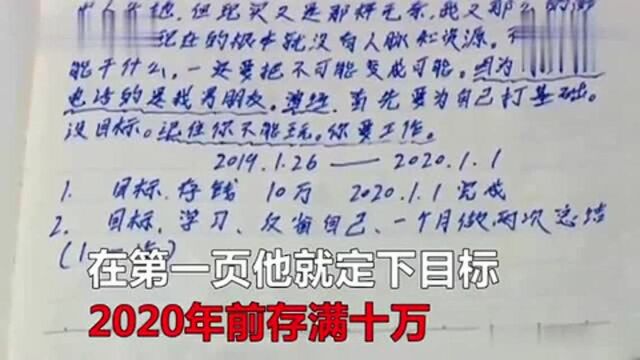 现在的根本就没有人脉和资源。
能干什么,一定要把不可能变成可能。因为
电话的是我男朋友。首先要为自己打基础。
没目标。记住你不能玩。你要工作。
2019.1.26 — 2020.1.1
1. 目标.存钱 10万 2020.1.1完成
2. 目标.学习、反省自己、一个月做两次总结
在第一页他就定下目标
2020年前存满十万